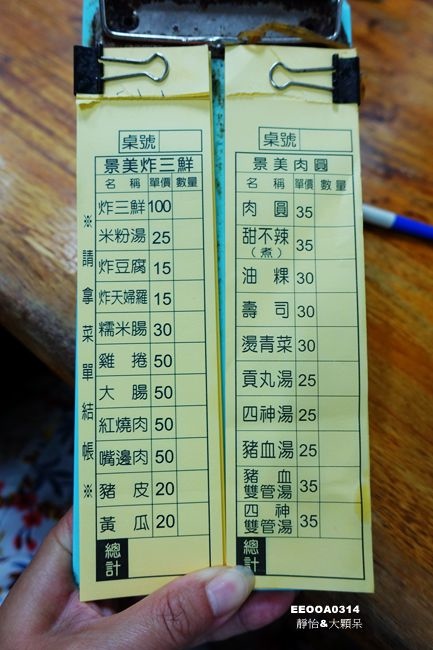 桌號
景美炸三鮮
名稱 單價 數量
炸三鮮 100
米粉湯 25
炸豆腐 15
炸天婦羅 15
糯米腸 30
雞捲 50
大腸 50
紅燒肉 50
嘴邊肉 50
豬皮 20
黃瓜 20
總計
※請拿菜單結帳※
桌號
景美肉圓
名稱 單價 數量
肉圓 35
甜不辣(煮) 35
油粿 30
壽司 30
燙青菜 30
貢丸湯 25
四神湯 25
豬血湯 25
豬血雙管湯 35
四神雙管湯 35
總計
EEOOA0314
靜怡&大顆呆